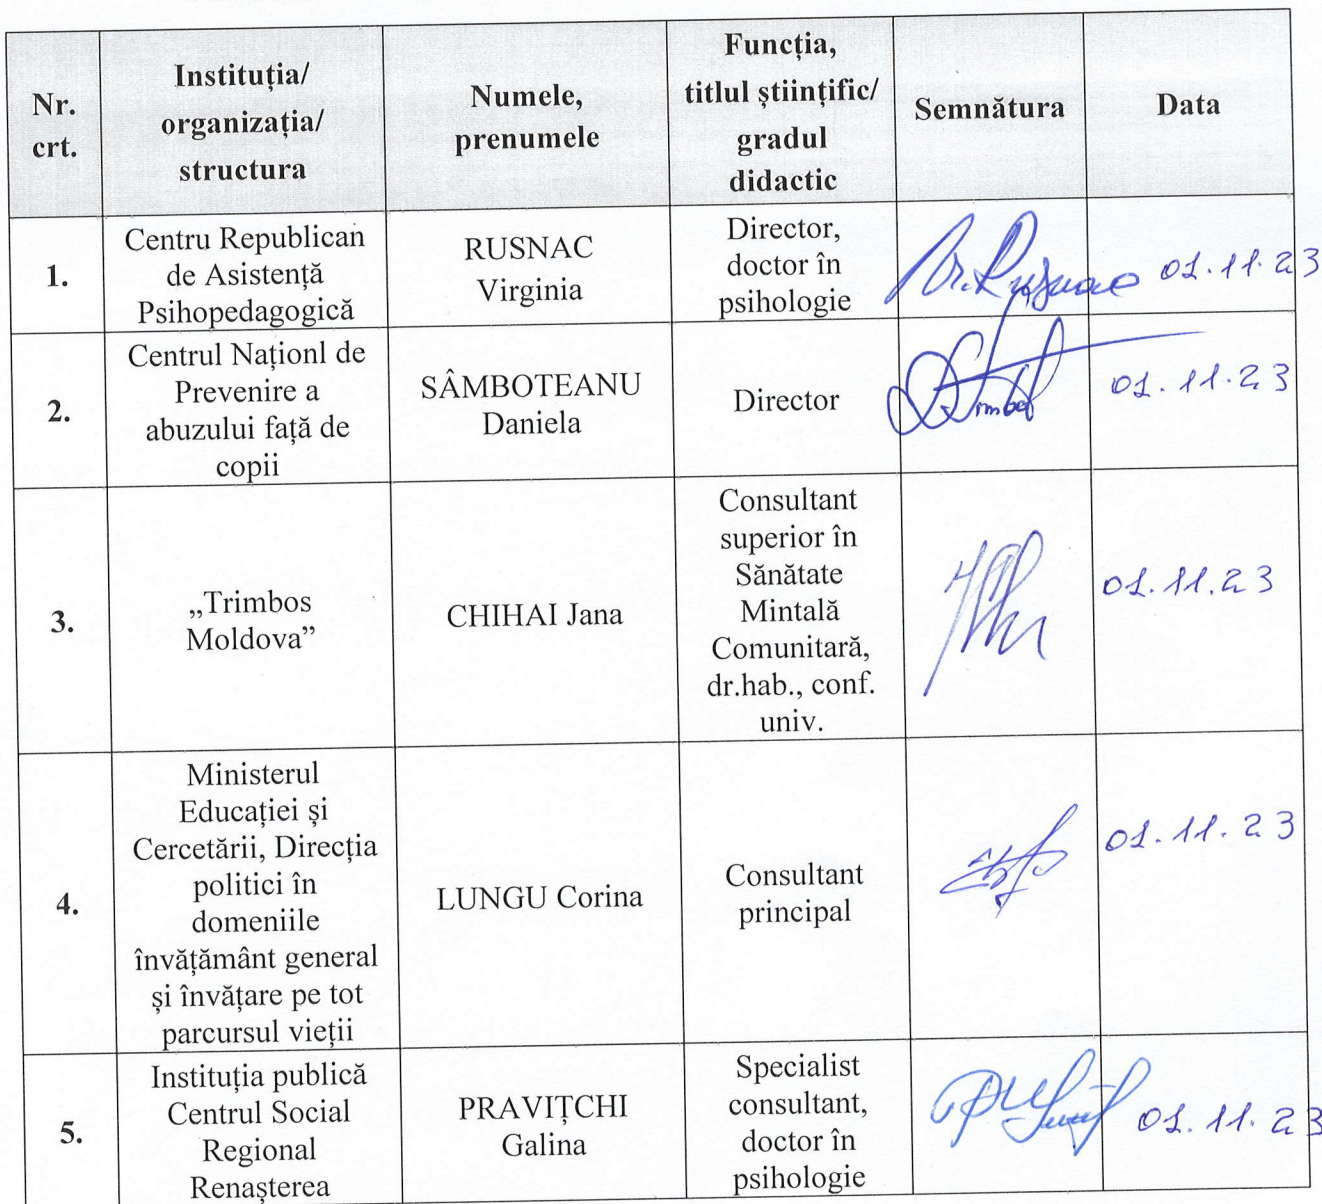 Nr.
crt.
Instituția/
organizația/
structura
Numele,
prenumele
Funcția,
titlul științific/
gradul
didactic
Semnătura
Data
1.
Centru Republican
de Asistență
Psihopedagogică
RUSNAC
Virginia
Director,
doctor în
psihologie
01.11.23
2.
Centrul Naționl de
Prevenire a
abuzului față de
copii
SÂMBOTEANU
Daniela
Director
01.11.23
3.
„Trimbos
Moldova”
CHIHAI Jana
Consultant
superior în
Sănătate
Mintală
Comunitară,
dr.hab., conf.
univ.
01.11.23
4.
Ministerul
Educației și
Cercetării, Direcția
politici în
domeniile
învățământ general
și învățare pe tot
parcursul vieții
LUNGU Corina
Consultant
principal
01.11.23
5.
Instituția publică
Centrul Social
Regional
Renașterea
PRAVIȚCHI
Galina
Specialist
consultant,
doctor în
psihologie
01.11.23